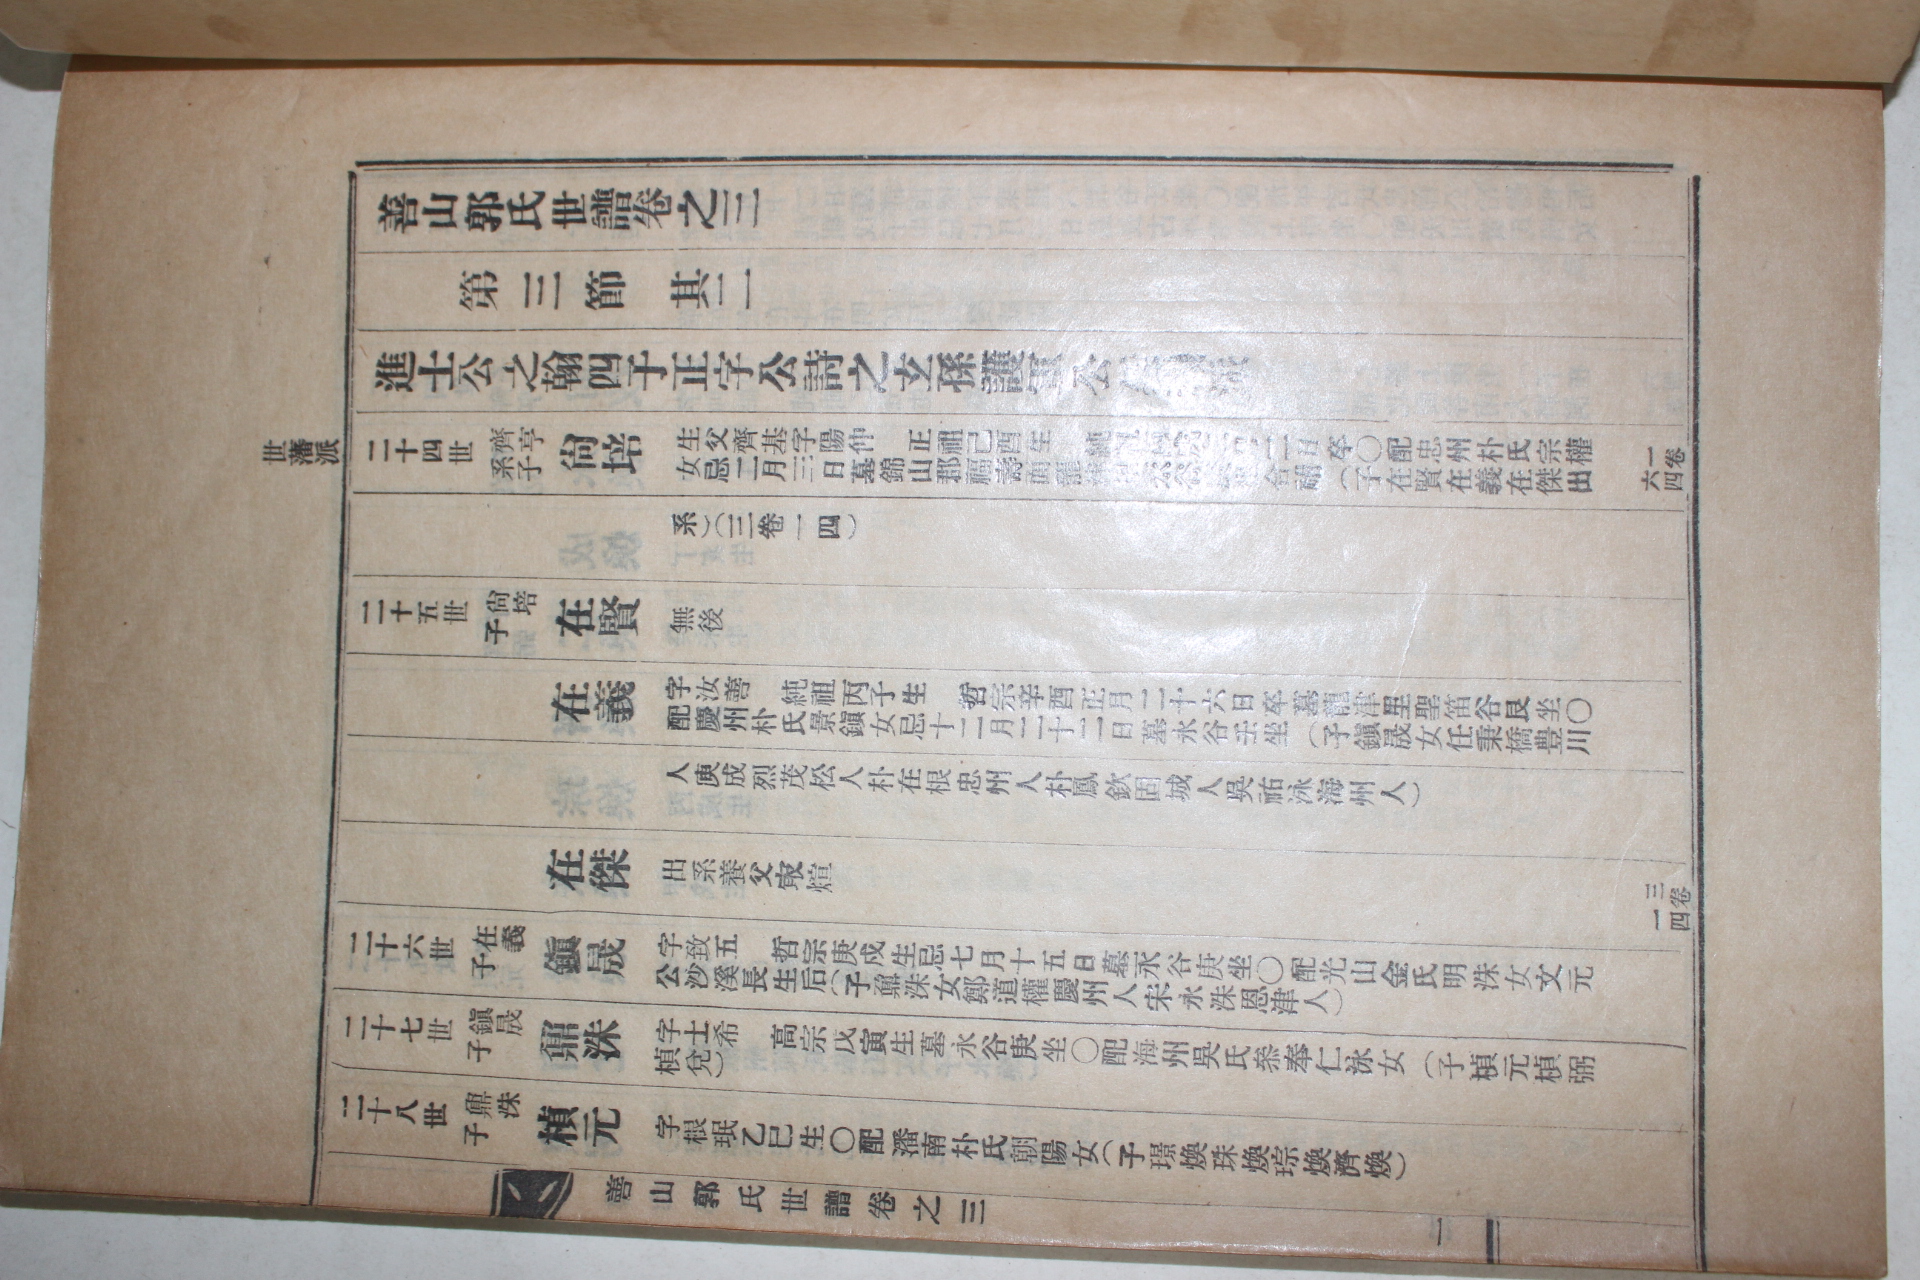 善山郭氏世譜卷之三
第三節 其二
進士公之翰四于正字公詩之玄孫護軍公
世藩派
二十四世
系齊亨子
尙培
生父齊基字陽仲 正祖己酉生 純 二日卒〇配忠州朴氏宗權
女忌二月三日墓錦山郡福壽面 合祔(子在賢在義在傑出
系)(三卷一四)
一卷六四
二十五世
尙培子
在賢
無後
在義
字汝善 純祖丙子生 哲宗辛酉正月二十六日卒墓龍津里聖笛谷艮坐〇
配慶州朴氏景鎭女忌十二月二十二日墓永谷壬坐(子鎭晟女任秉橋豊川
人庾成烈茂松人朴在根忠州人朴鳳欽固城人吳祐泳海州人)
在傑
出系養父取煊
三卷一四
二十六世
在義子
鎭晟
字致五 哲宗庚戌生忌七月十五日墓永谷庚坐〇配光山金氏明洙女文元
公沙溪長生后(子鼎洙女鄭道權慶州人宋永洙恩津人)
二十七世
鎭晟子
鼎洙
字士希 高宗戊寅生墓永谷庚坐〇配海州吳氏叅奉仁泳女(子楨元楨弼
楨兌)
二十八世
鼎洙子
楨元
字根珉乙巳生〇配潘南朴氏朝陽女(子璟煥珠煥琮煥濟煥)
善山郭氏世譜卷之三
一